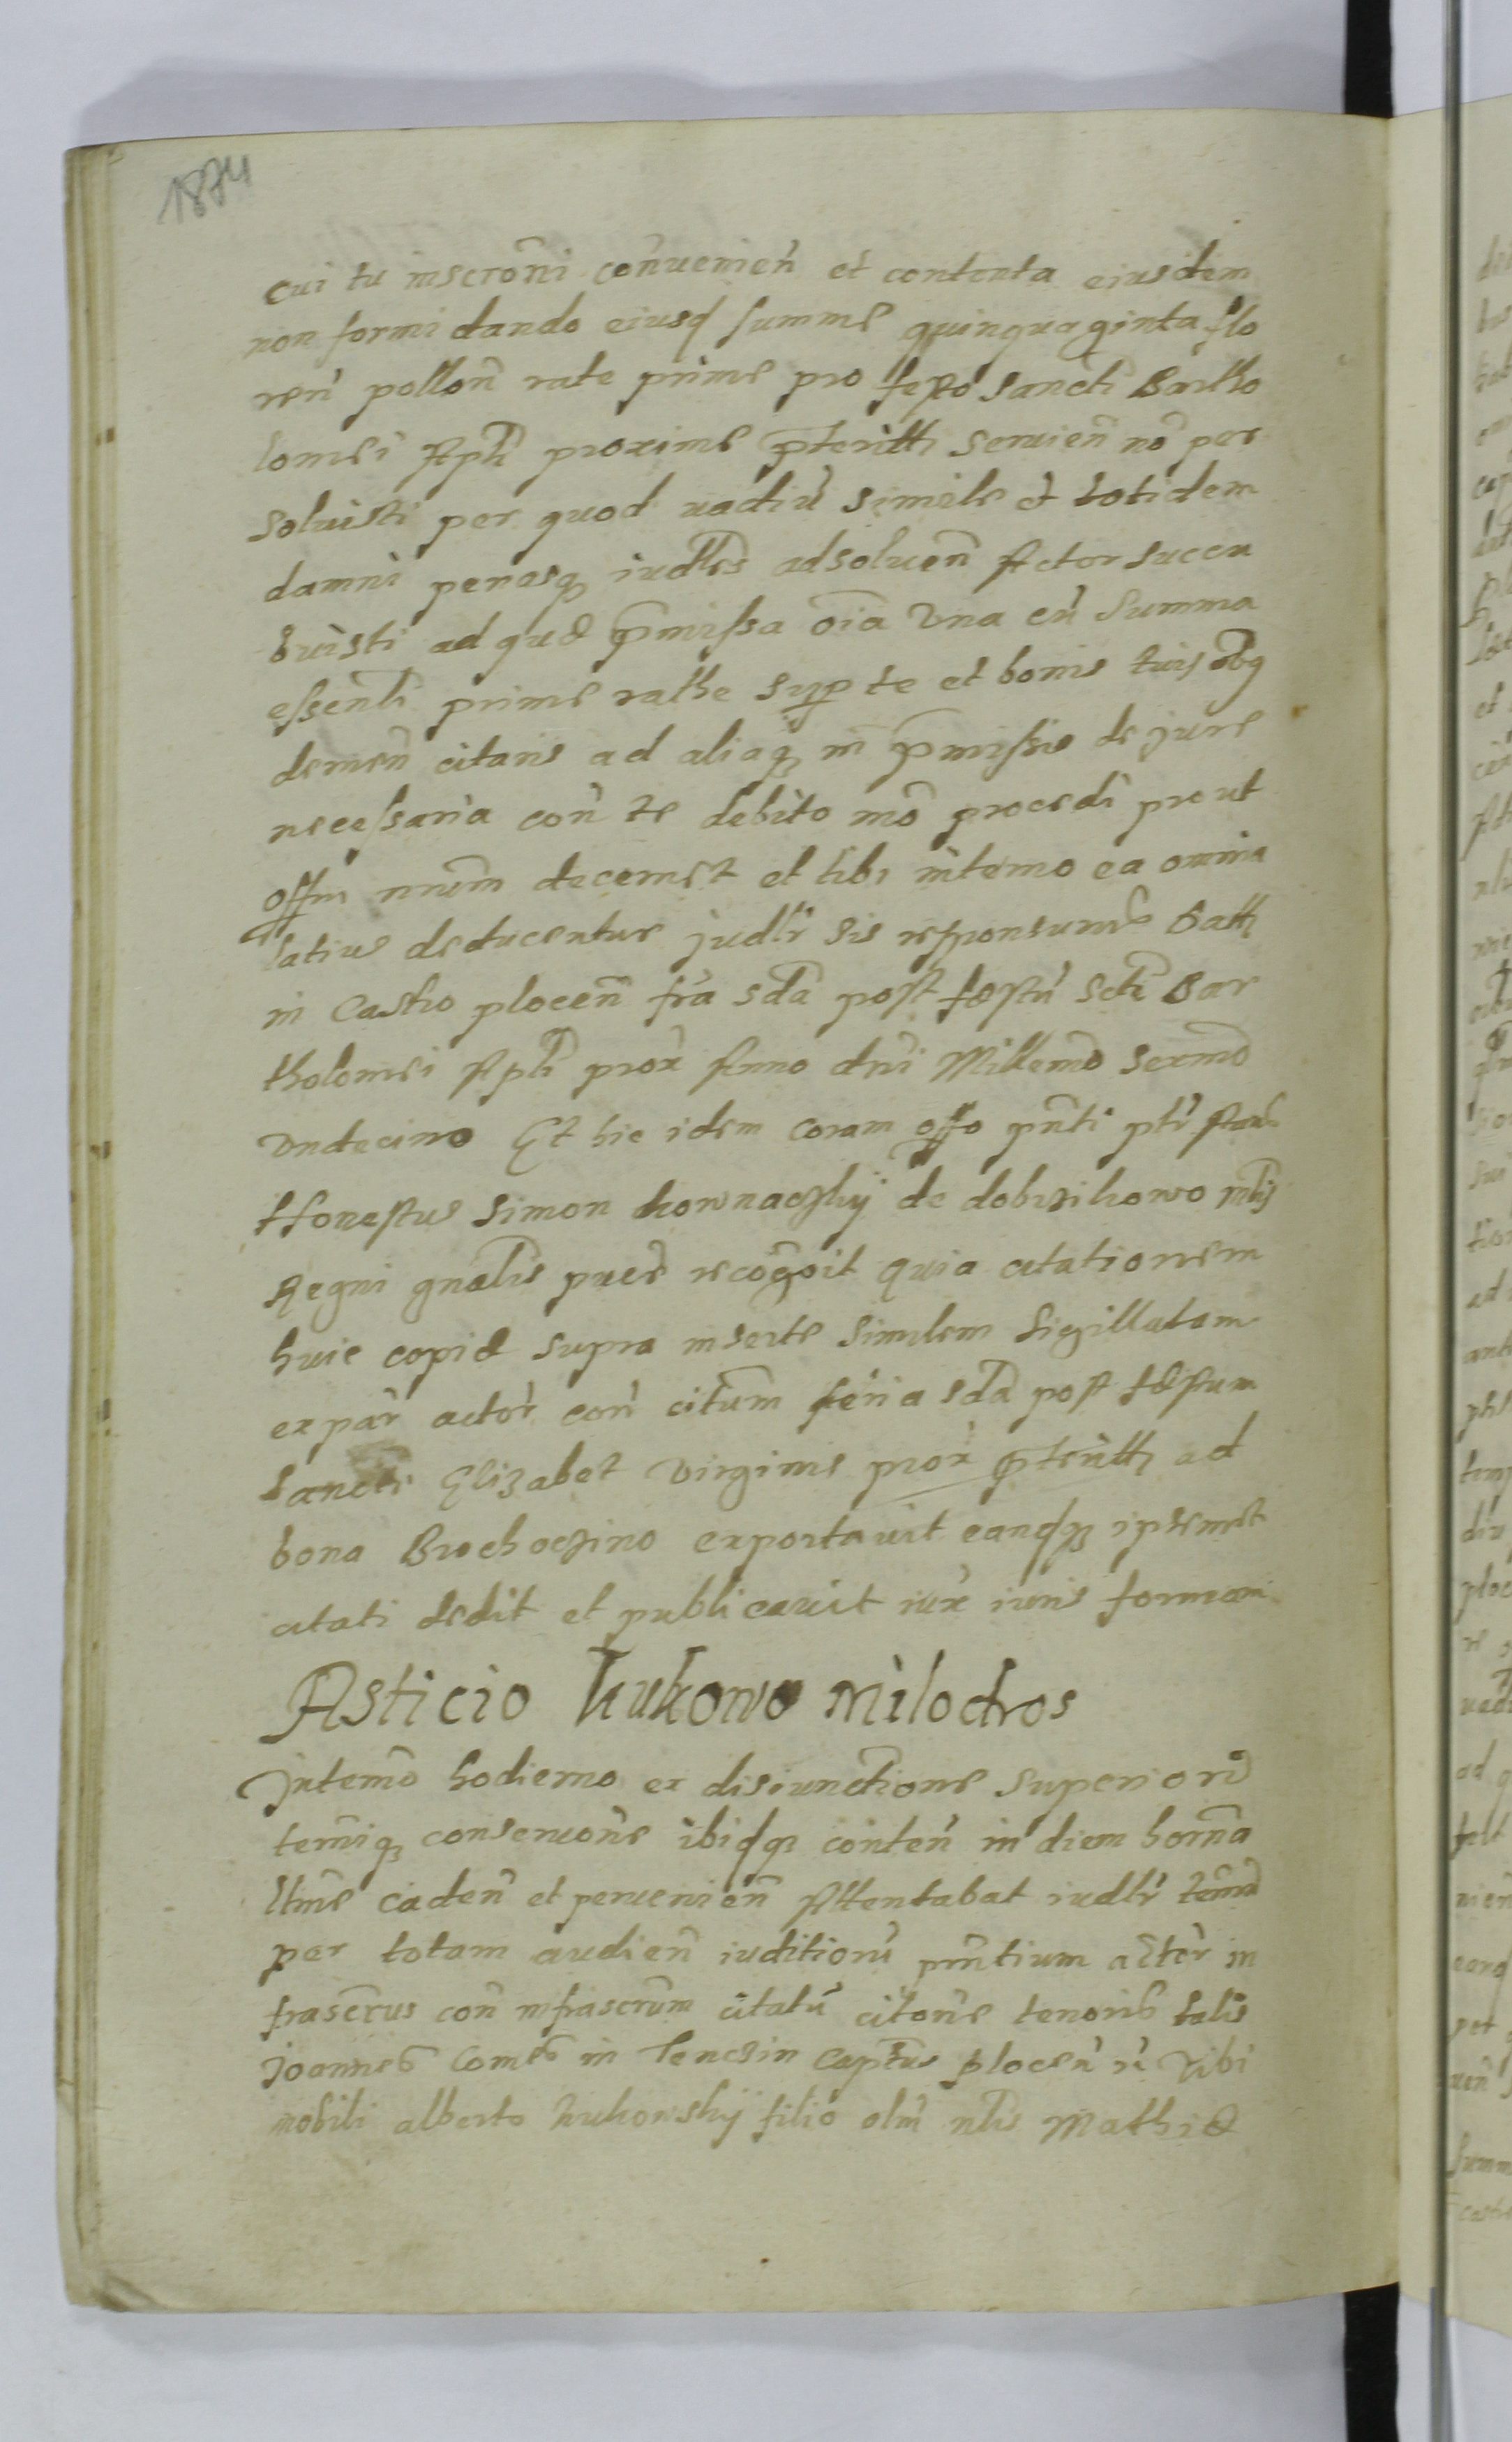 1874
cui tu inscroni convenien et contenta eiusdem
non formidando eiusq summe quinquaginta flo
ren pollon rate prime pro festo Sancti Bartho
lomei Apli proxime pterith servien no per
solvisti per quod vadiu simile et totidem
damni penasq iudles adsolven Actor succu
buisti ad que pmissa oia Una cu Summa
essenli prime rathe sup te et bonis tuis obq
demen citaris ad aliaq in pmissis de jure
necessaria con te debito mo procedi prout
offm nrum decernet et tibi in termo ea omnia
latius deducentur judlr sis responsurus Dath
in Castro plocen fria sda post festu scti Bar
tholomei Apli prox Anno dni Millemo sexmo
Undecimo Et hic idem coram offo pnti ptr stans
Honestus Simon kownaczkij de dobrzikowo mlis
Regni gnalis puer recogoit quia citationem
huic copie supra inserte similem sigillatam
ex par actor con citum feria sda post festum
Sancte Elizabet Virginis prox pterith ad
bona Brochoczino exportavit eandqz ipsemet
citati dedit et publicavit iux iuris formam
Asticio kukowo Milodros
In termo hodierno ex disiunctione superiori
termiq conservone ibidqz conten in diem horna
ltme caden et pervenien Attentabat iudlr term
per totam audien iuditioru pntium acter in
frascrus con infrascrum citatu citone tenoris talis
Joannes Comes in Tenczin Captus plocen rc Tibi
nobili alberto kukowskij filio olim nlis Mathie